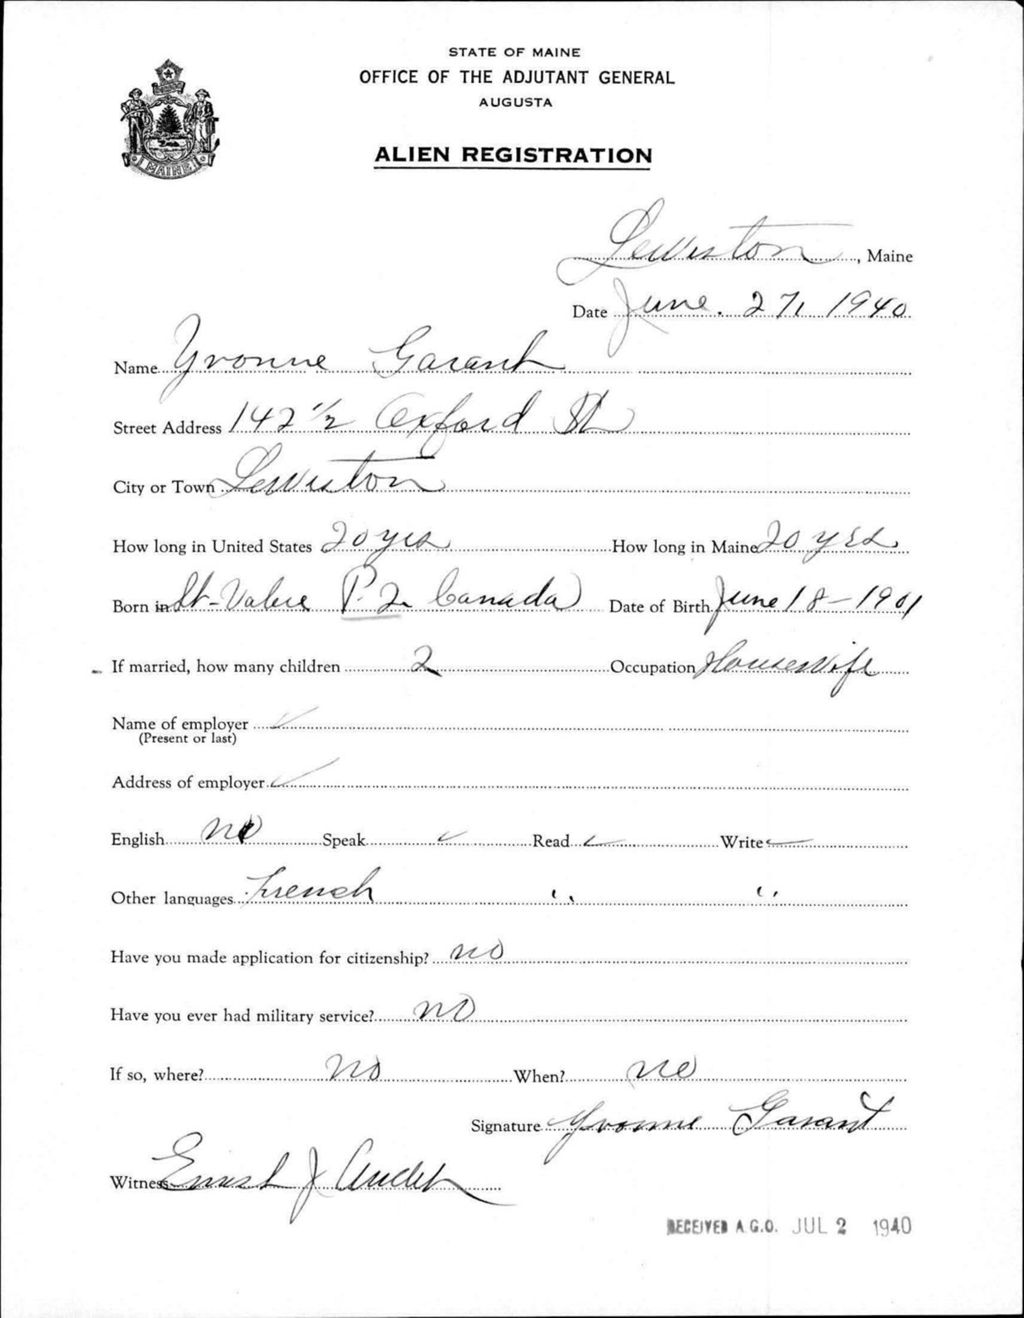 STATE OF MAINE
OFFICE OF THE ADJUTANT GENERAL
AUGUSTA
ALIEN REGISTRATION
MAINE
Lewiston, Maine
Date June. 27, 1940
Name Yvonne Garant
Street Address 142 1/2 Oxford St
City or Town Lewiston
How long in United States 20 yrs How long in Maine 20 yrs
Born in St-Valere P.Q. Canada Date of Birth June 18-1901
If married, how many children 2 Occupation Housewife
Name of employer
(Present or last)
Address of employer
English no Speak Read Write
Other languages French " "
Have you made application for citizenship? no
Have you ever had military service? no
If so, where? no When? no
Signature Yvonne Garant
Witness Ernest J Audet
RECEIVED A.G.O. JUL 2 1940